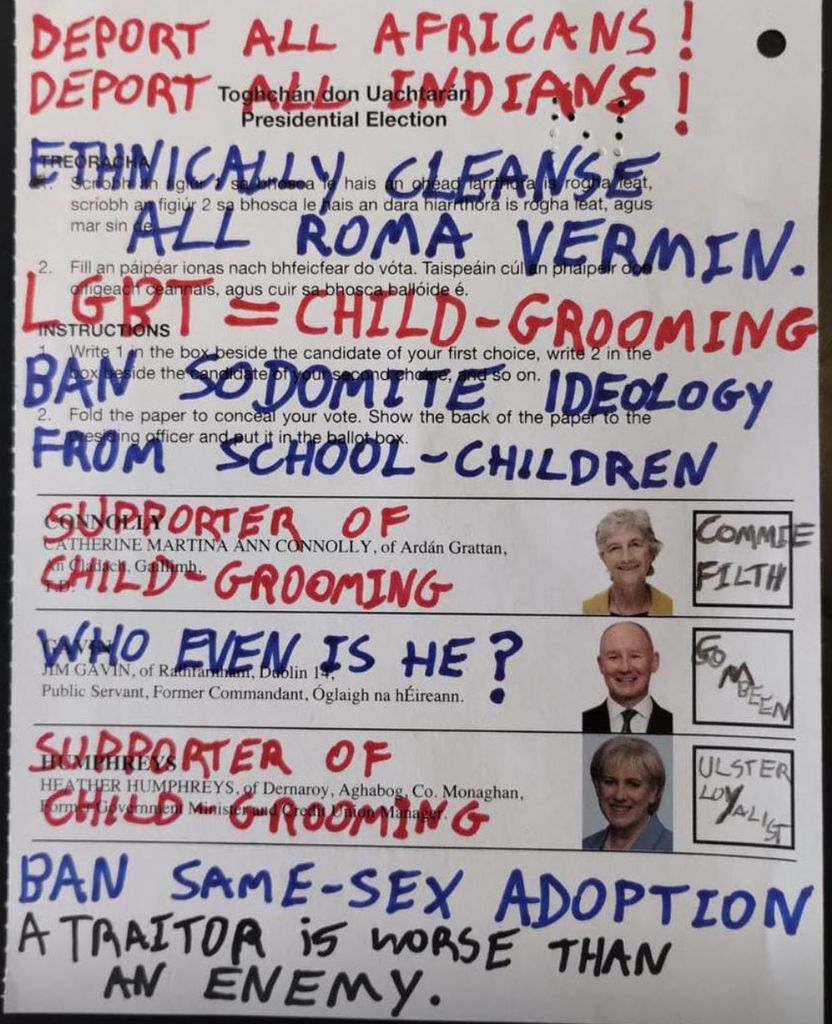 DEPORT ALL AFRICANS!
DEPORT ALL INDIANS!
Toghchán don Uachtarán
Presidential Election
ETHNICALLY CLEANSE
ALL ROMA VERMIN.
TREORACHA
1. Scríobh an figiúr 1 sa bhosca le hais an chéad iarrthóra is rogha leat,
scríobh an figiúr 2 sa bhosca le hais an dara hiarrthóra is rogha leat, agus
mar sin de.
2. Fill an páipéar ionas nach bhfeicfear do vóta. Taispeáin cúl an pháipéir don
oifigeach ceannais, agus cuir sa bhosca ballóide é.
LGBT = CHILD-GROOMING
INSTRUCTIONS
1. Write 1 in the box beside the candidate of your first choice, write 2 in the
box beside the candidate of your second choice, and so on.
BAN SODOMITE IDEOLOGY
2. Fold the paper to conceal your vote. Show the back of the paper to the
presiding officer and put it in the ballot box.
FROM SCHOOL-CHILDREN
SUPPORTER OF
CONNOLLY
CATHERINE MARTINA ANN CONNOLLY, of Ardán Grattan,
An Cladach, Gaillimh,
T.D.
CHILD-GROOMING
COMMIE
FILTH
WHO EVEN IS HE?
GAVIN
JIM GAVIN, of Rathfarnham, Dublin 14,
Public Servant, Former Commandant, Óglaigh na hÉireann.
GOMBEEN
SUPPORTER OF
HUMPHREYS
HEATHER HUMPHREYS, of Dernaroy, Aghabog, Co. Monaghan,
Former Government Minister and Credit Union Manager.
CHILD GROOMING
ULSTER
LOYALIST
BAN SAME-SEX ADOPTION
A TRAITOR is WORSE THAN
AN ENEMY.